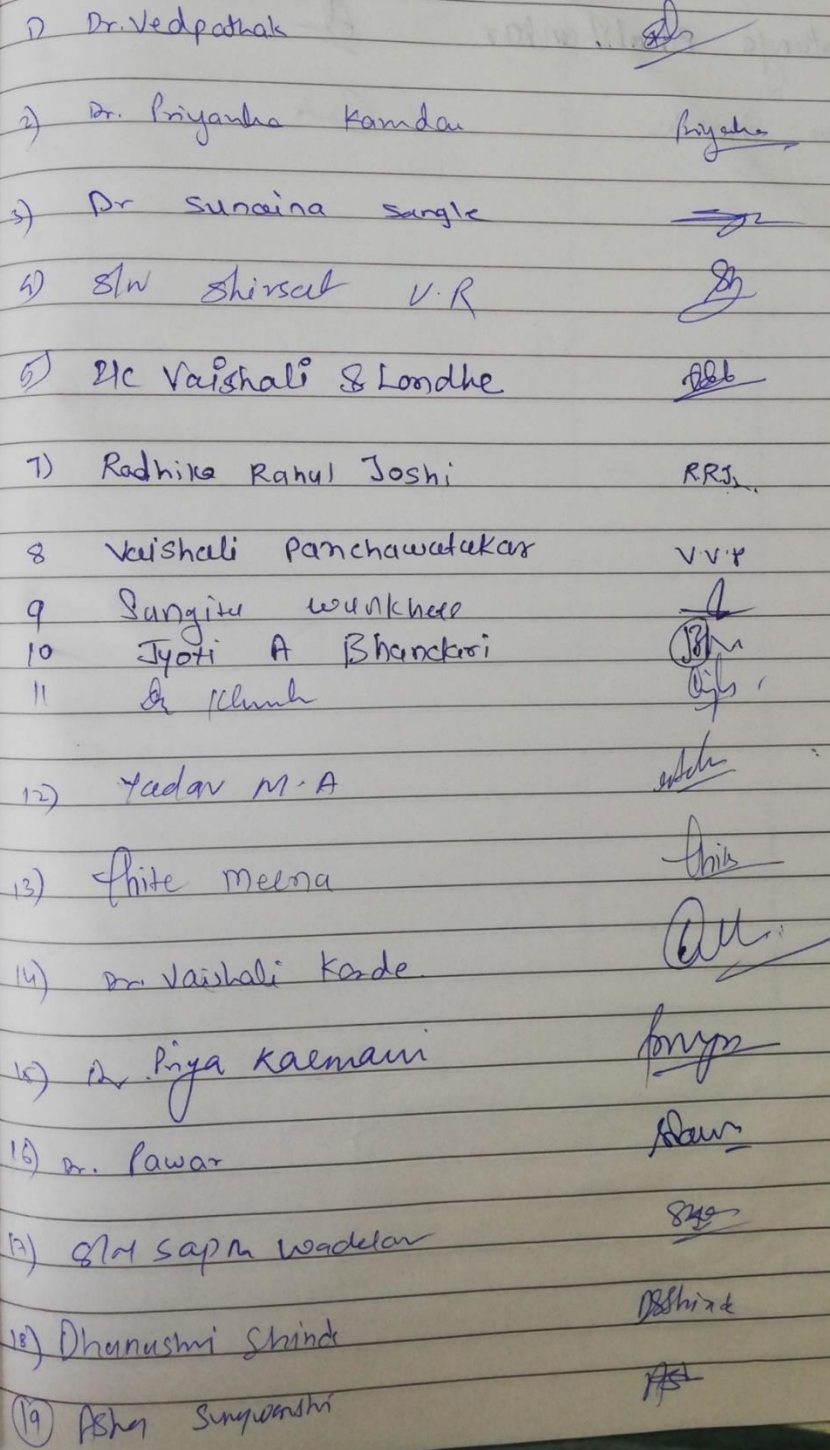 1) Dr. Vedpathak
2) Dr. Priyanka Kamdar Priyanka
3) Dr Sunaina Sangle
4) S/N Shirsat V.R
5) I/C Vaishali S Londhe
7) Radhika Rahul Joshi R.R.J.
8 Vaishali Panchawatakar V.V.P
9 Sangita Wankhede
10 Jyoti A Bhandari
11 Dr
12) Yadav M.A
13) Thite Meena Thite
14) Dr. Vaishali Korde
15) Dr. Priya Kalmani
16) Dr. Pawar
17) S/N Sapna Wadekar
18) Dhanashri Shinde DSShinde
19 Asha Suryawanshi